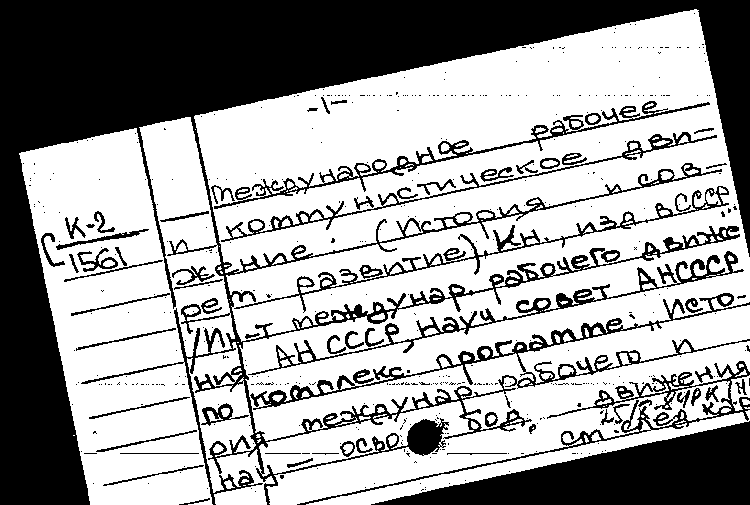 -1-
Международное рабочее
и коммунистическое дви-
жение. (История и сов-
рем. развитие). Кн., изд. в СССР
К-2
1561
/Ин-т междунар. рабочего движе
ния АН СССР, Науч. совет АНСССР
по комплекс. программе: „Исто-
рия междунар. рабочего и
нац.- осво бод. движения
см. след. кар